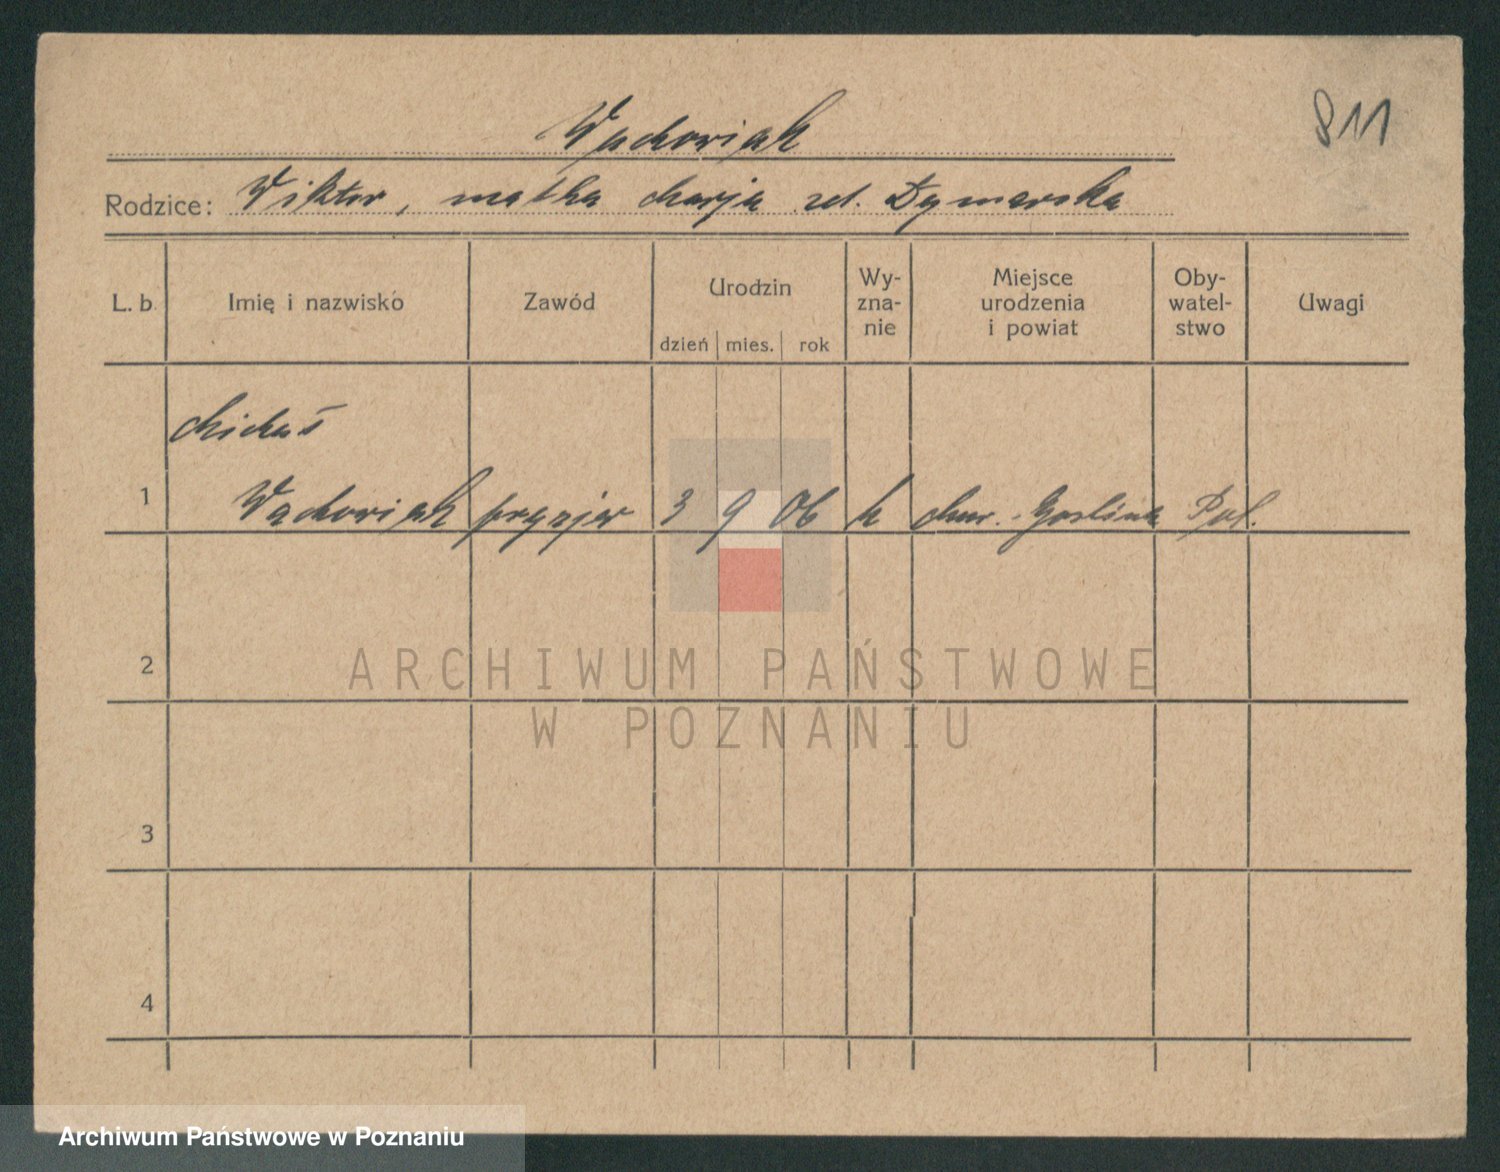 811
Wachowiak
Rodzice: Wiktor, matka Marja zd. Dymarska
L. b. Imię i nazwisko Zawód Urodzin dzień mies. rok Wy-zna-nie Miejsce urodzenia i powiat Oby-watel-stwo Uwagi
Michał
1 Wachowiak fryzjer 3 9 06 k Mur. Goślina Pol.
2
ARCHIWUM PAŃSTWOWE
W POZNANIU
3
4
Archiwum Państwowe w Poznaniu